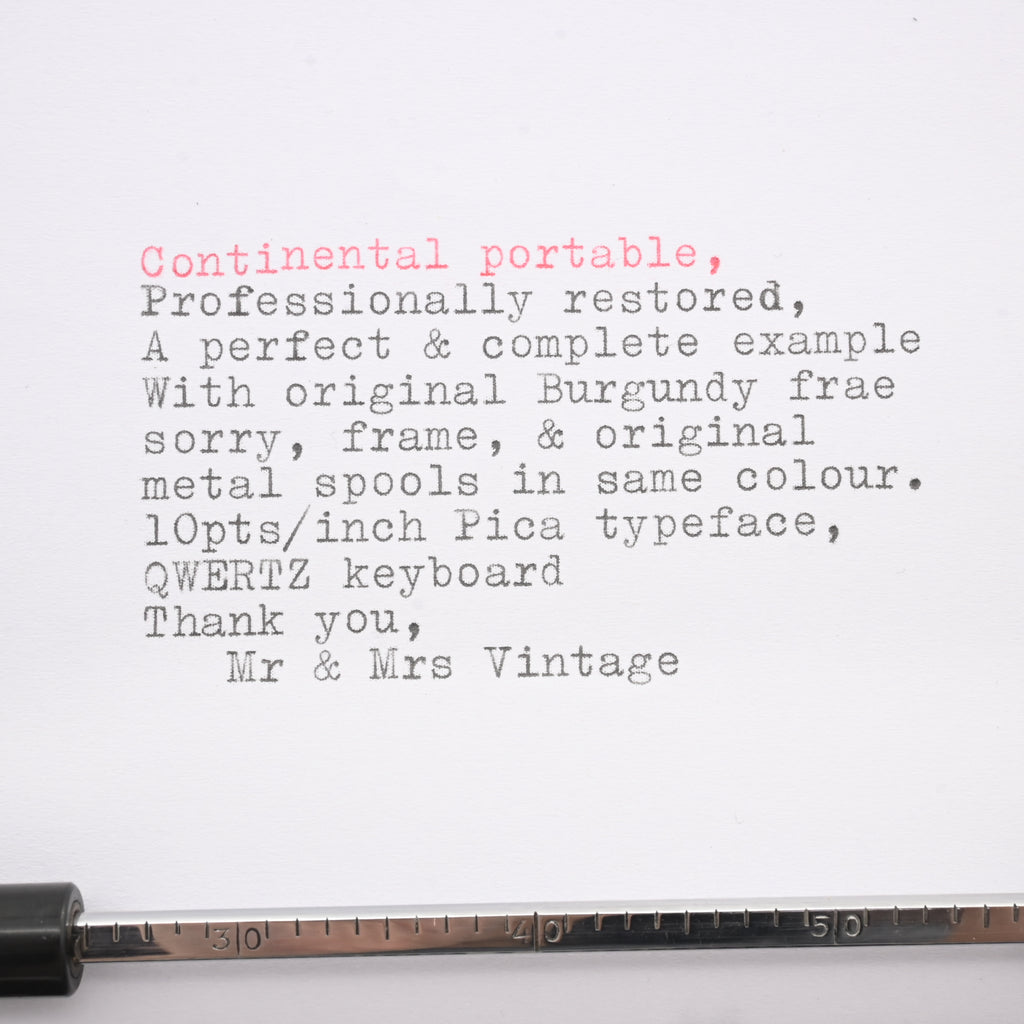 Continental portable,
Professionally restored,
A perfect & complete example
With original Burgundy frae
sorry, frame, & original
metal spools in same colour.
10pts/inch Pica typeface,
QWERTZ keyboard
Thank you,
Mr & Mrs Vintage
30 40 50